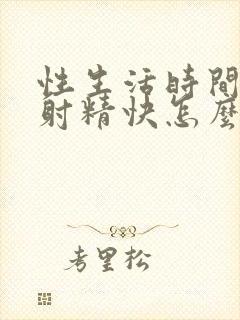 性生活時間
射精快怎麼
考里松